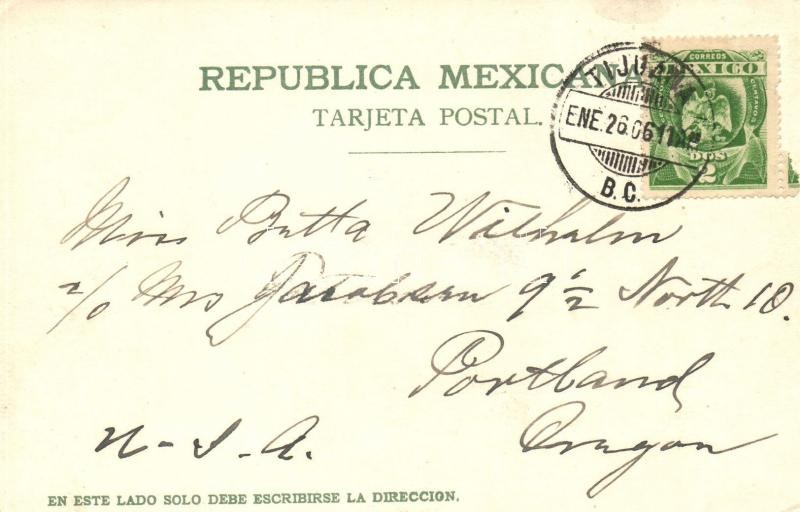 REPUBLICA MEXICANA
TARJETA POSTAL.
CORREOS
MEXICO
DOS
2
TIJUANA
ENE.26.06 11AM
B.C.
Miss Betta Wilhalm
c/o Mrs Jacobsen 9½ North 10.
Portland
Oregon
U-S.A.
EN ESTE LADO SOLO DEBE ESCRIBIRSE LA DIRECCION.